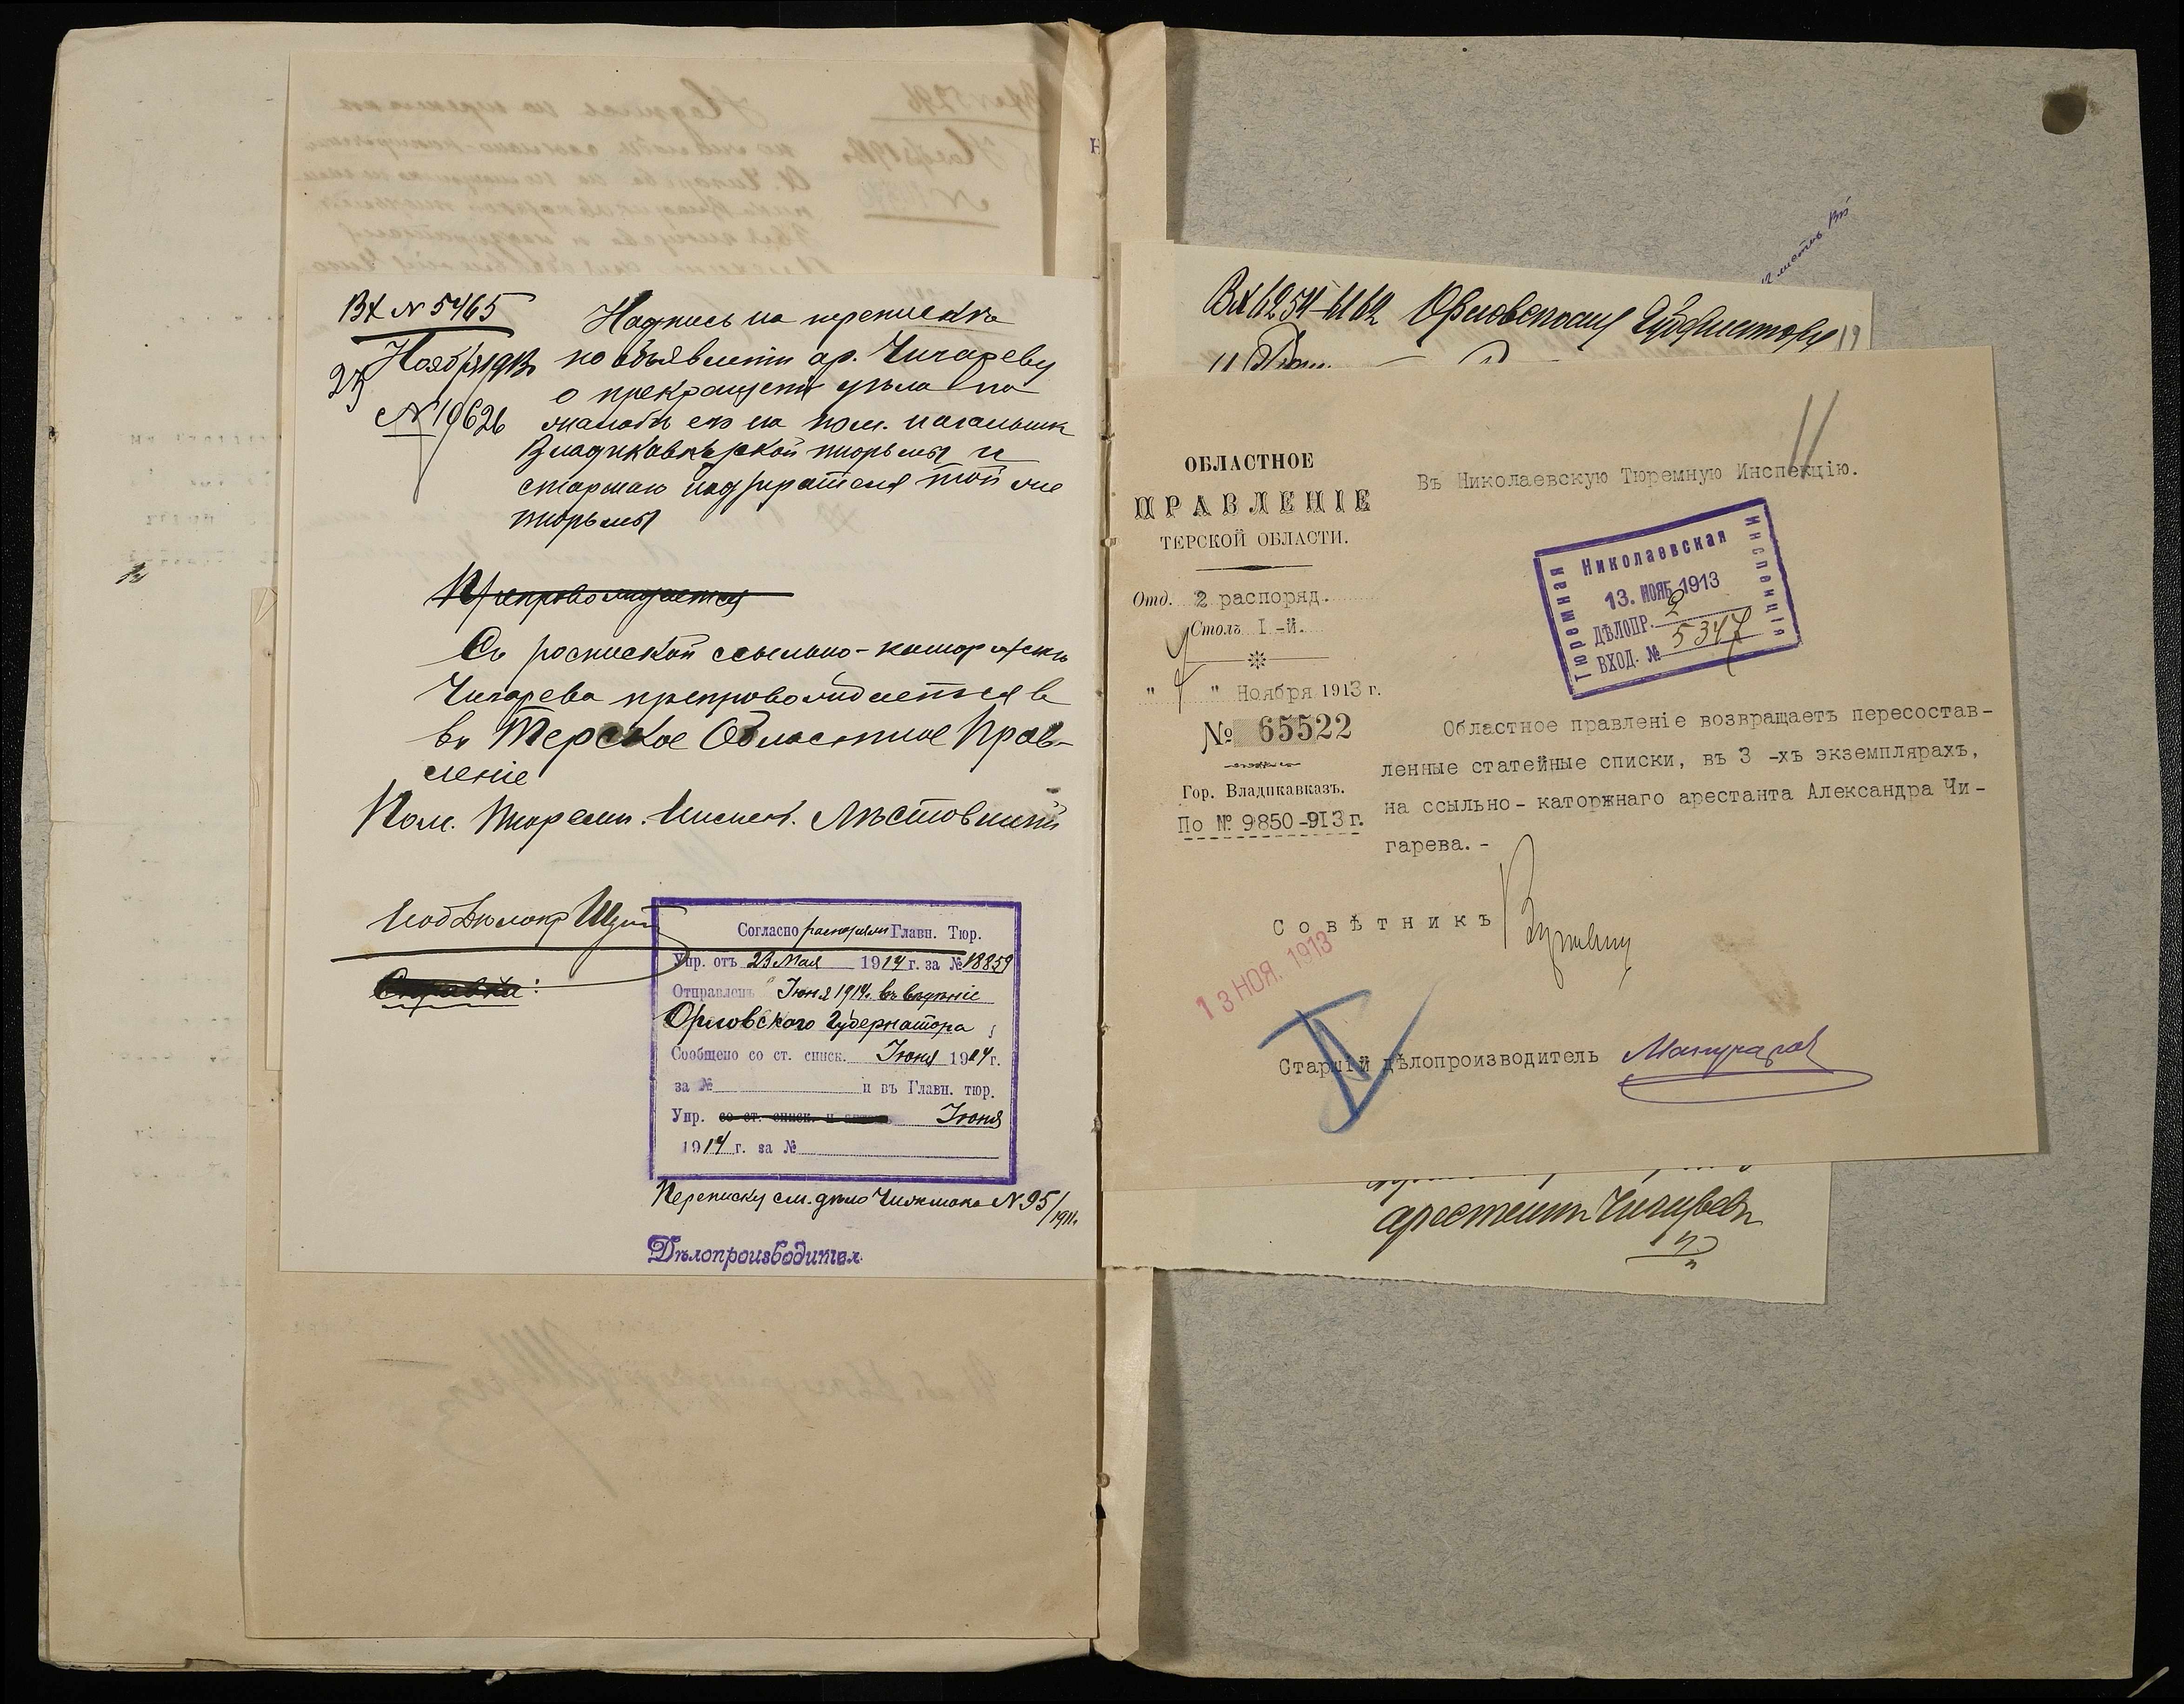 Вх N 5465
27 Ноября 1913
N 19626
Надпись на перепискѣ
по объявленiи ар. Чигареву
о прекращенiи дѣла по
жалобѣ его на пом. начальника
Владикавказской тюрьмы и
старшаго надзирателя той же
тюрьмы
Препровождается
Съ роспиской ссыльно-каторжн
Чигарева препровождается въ
въ Терское Областное Прав-
ленiе
Пом. Тюремн. Инспек.
Справка:
Согласно Главн. Тюр.
Упр. отъ 23 Мая 1914 г. за № 18859
Отправленъ " Iюня 1914. въ вѣдѣнiе
Орловского Губернатора
Сообщено со ст. списк. Iюня 1914 г.
за № и въ Главн. тюр.
Упр. со ст. списк. и Iюня
1914 г. за №
Переписку см. дѣло N 95/1911.
Дѣлопроизводител.
Вх 6254
Орловскому Губернатору
19
11
ОБЛАСТНОЕ
ПРАВЛЕНIЕ
ТЕРСКОЙ ОБЛАСТИ.
Отд. 2 распоряд.
Столъ I-й.
" " Ноября 1913 г.
№ 65522
Гор. Владикавказъ.
По № 9850-913 г.
Въ Николаевскую Тюремную Инспекцiю.
Николаевская
Тюремная
Инспекцiя
13. НОЯБ 1913
ДѢЛОПР. 2
ВХОД. № 5347
Областное правленiе возвращаетъ пересостав-
ленные статейные списки, въ 3 -хъ экземплярахъ,
на ссыльно- каторжнаго арестанта Александра Чи-
гарева. -
Совѣтникъ
13 НОЯ. 1913
Старшiй дѣлопроизводитель
арестантъ Чигаревъ